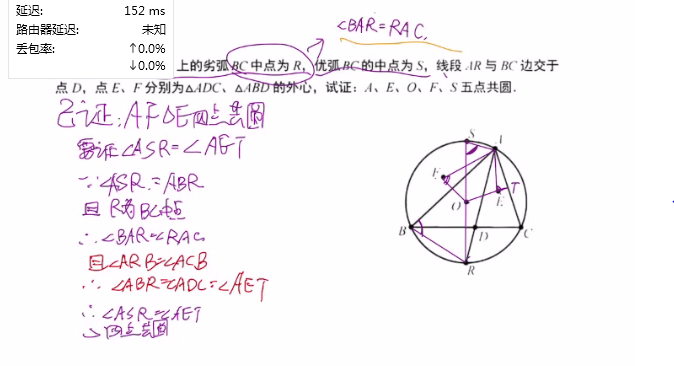 延迟: 152 ms
路由器延迟: 未知
丢包率: ↑0.0%
↓0.0%
∠BAR=RAC.
上的劣弧BC中点为R，优弧BC的中点为S，线段AR与BC边交于
点D，点E、F分别为△ADC、△ABD的外心，试证：A、E、O、F、S五点共圆.
已证:AFOE四点共圆
需证∠ASR=∠AET
∵∠ASR=ABR
且R为BC中点
∴∠BAR=∠RAC
且∠ARB=∠ACB
∴∠ABR=∠ADC=∠AET
∴∠ASR=∠AET
∴四点共圆
S
F
T
O
E
B
D
C
R